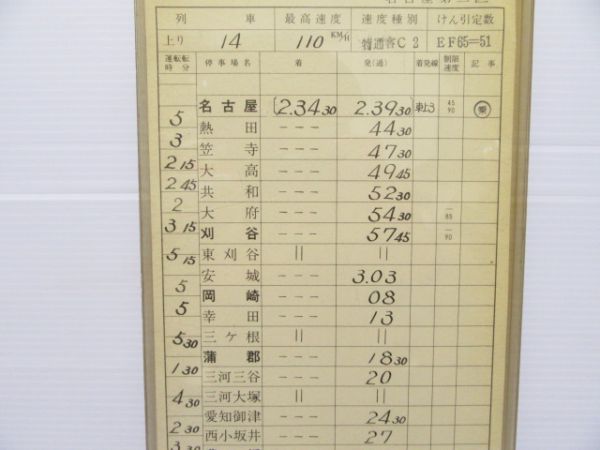 列車 最高速度 速度種別 けん引定数
上り 14 110 KM/H 特通客C2 EF65=51
運転時分 停車場名 着 発(通) 着発線 制限速度 記事
名古屋 2.34 30 2.39 30 東上3 45 90 乗
5
熱田 --- 44 30
3
笠寺 --- 47 30
2 15
大高 --- 49 45
2 45
共和 --- 52 30
2
大府 --- 54 30 — 85
3 15
刈谷 --- 57 45 — 90
東刈谷 || ||
5 15
安城 --- 3.03
5
岡崎 --- 08
5
幸田 --- 13
三ヶ根 || ||
5 30
蒲郡 --- 18 30
1 30
三河三谷 --- 20
三河大塚 || ||
4 30
愛知御津 --- 24 30
2 30
西小坂井 --- 27